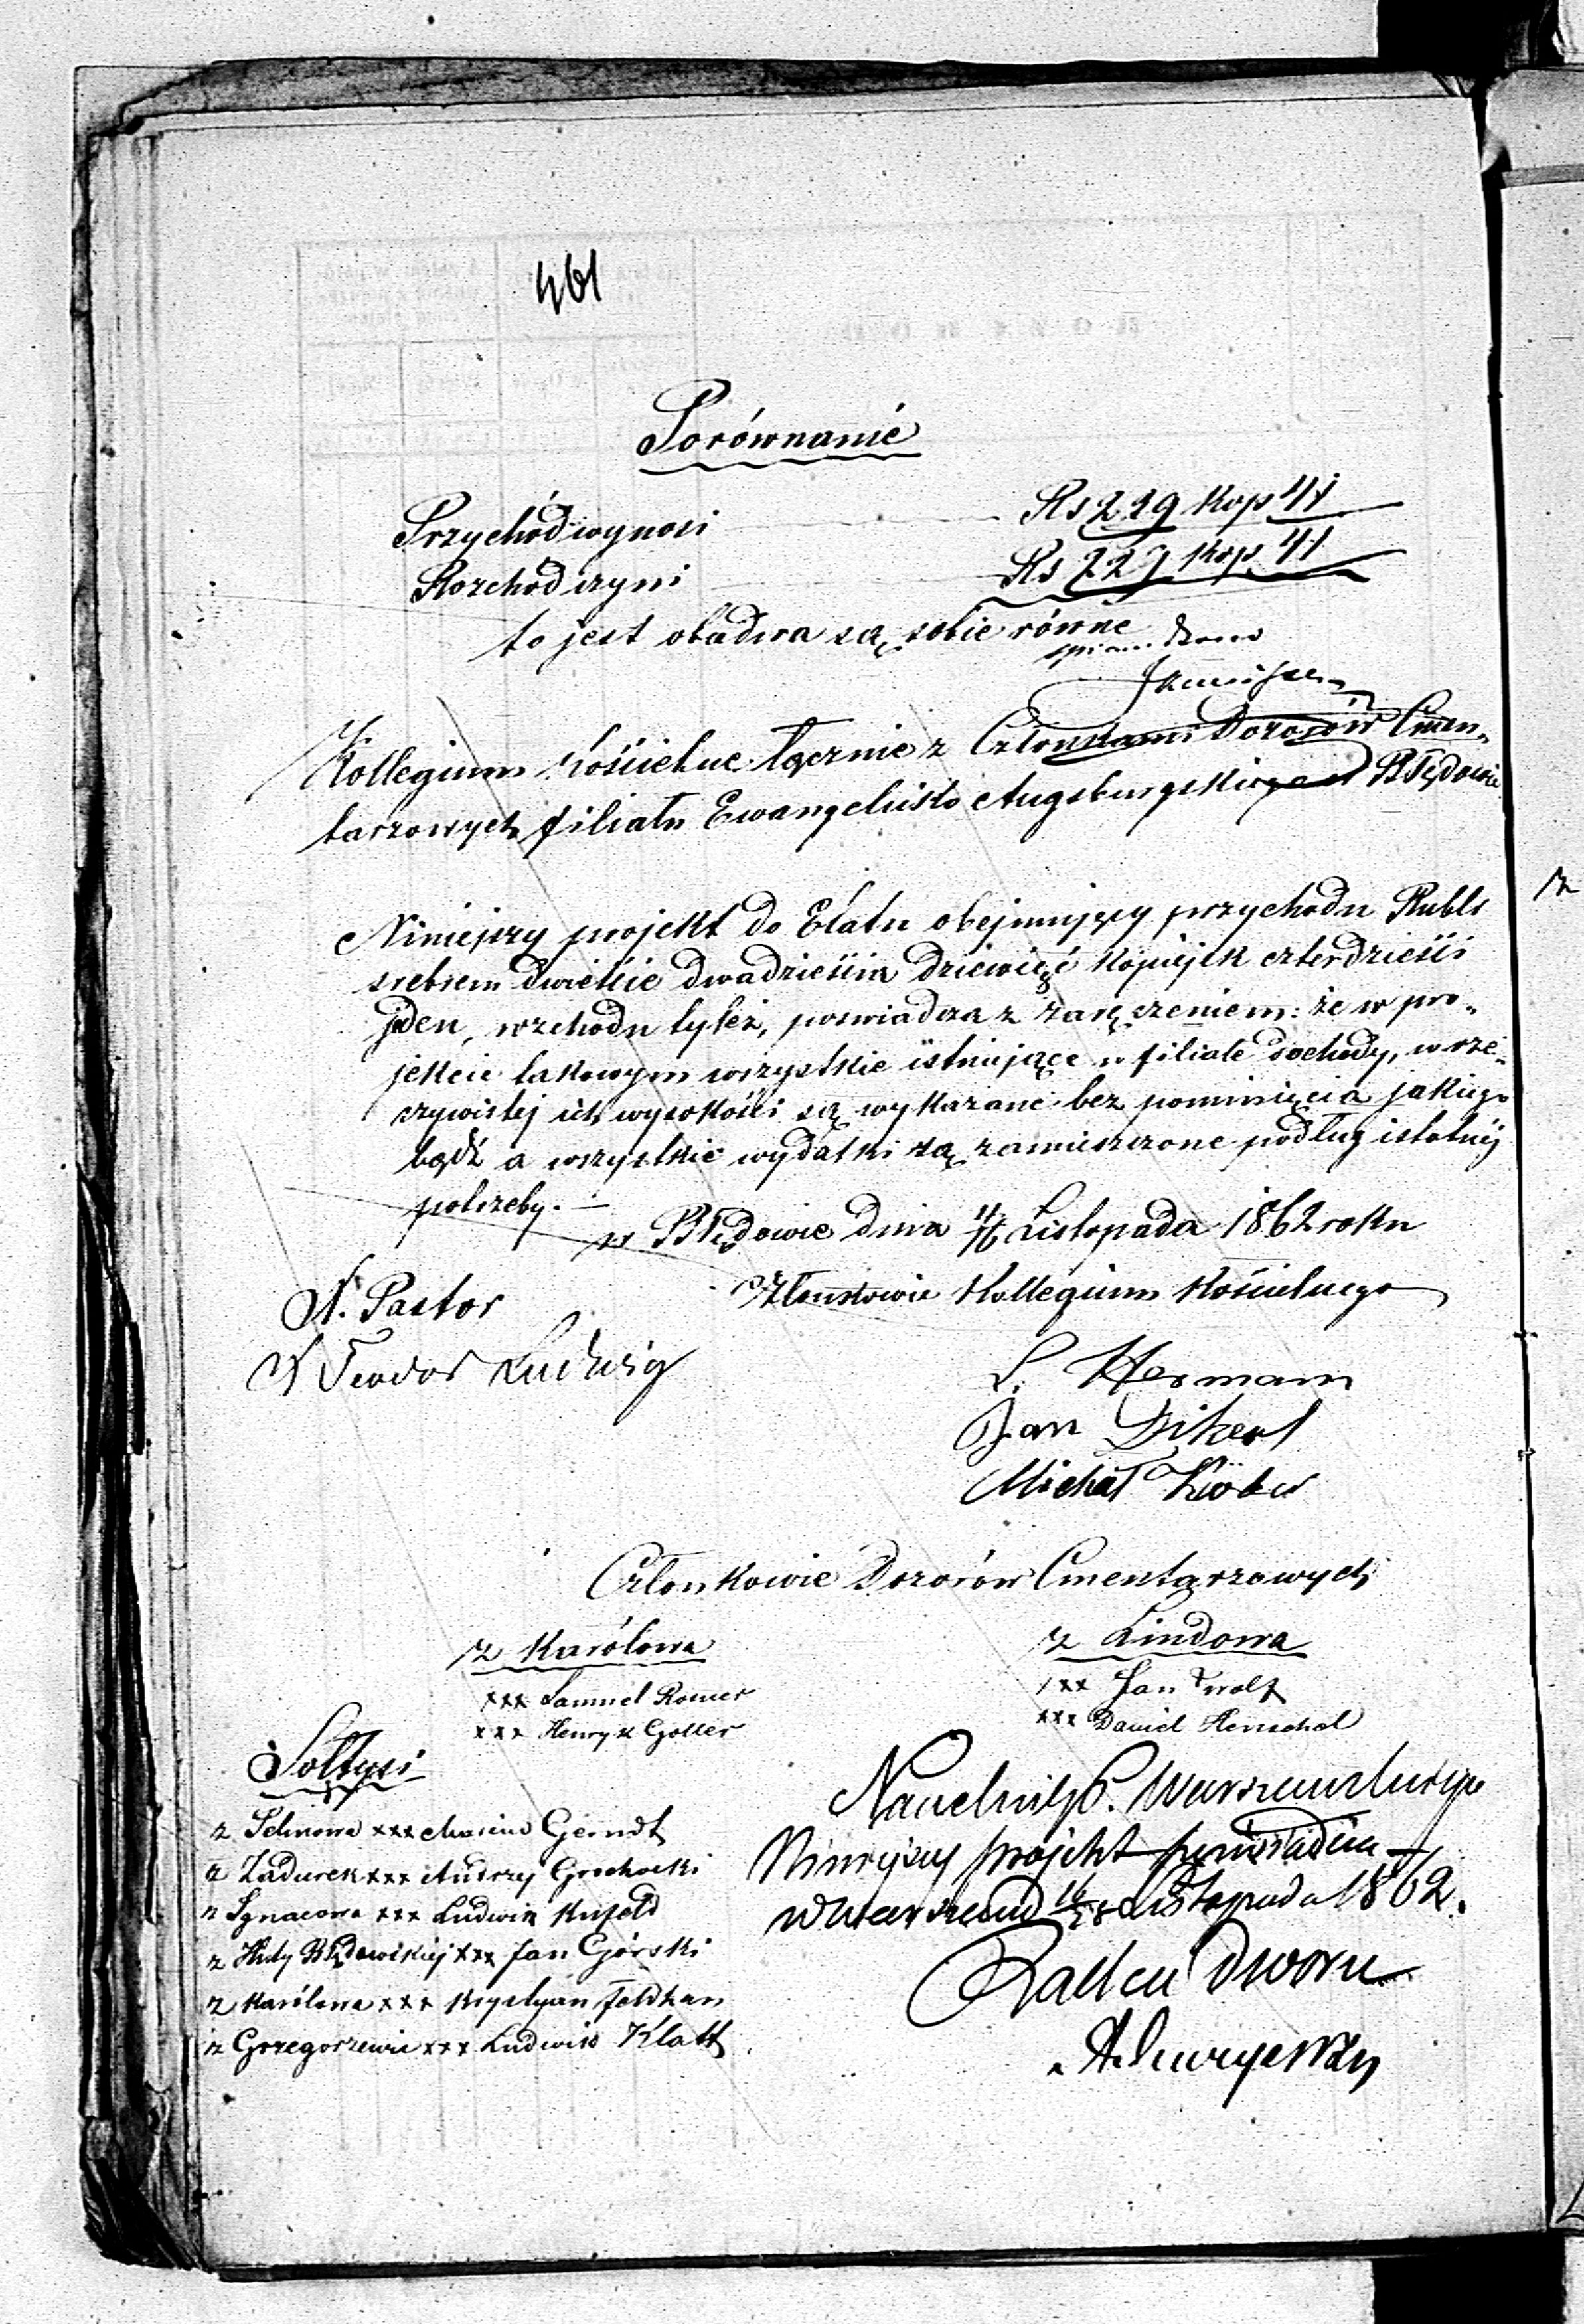 461
Porównanie
Przychód wynosi Rs 229 Kop 41
Rozchód czyni Rs 229 Kop 41
to jest obadwa są sobie równe
Kollegium Kościelne łącznie z Członkami Dozorów Cmen„
tarzowych filiału Ewangelicko Augsburgskiego w Błędowie
Niniejszy projekt do Etatu obejmujący przychodu Rubli
srebrem dwieście dwadzieścia dziewięć kopiejek czterdzieści
jeden, rozchodu tyleż, poswiadcza z zaręczeniem: że w pro„
jekcie takowym wszystkie istniejące w filiale dochody, w rze„
czywistej ich wysokości są wykazane bez pominięcia jakiego
bądź a wszystkie wydatki są zamieszczone podług istotnéj
potrzeby. —
w Błędowie dnia 4/16 Listopada 1862 roku
N. Pastor Członkowie Kollegium Kościelnego
Teodor Ludwig
L. Herman
Jan Dikert
Michał
Członkowie Dozorów Cmentarzowych
z Karólowa z Lindowa
xxx Samuel Romer xxx Jan Wolf
xxx Henryk Goller xxx Daniel Henschel
Sołtysi
Naczelnik P. Warszawskiego
z xxx Gerndt
Niniejszy projekt poświadcza —
z Zadurek xxx Andrzej Grochocki
w Warszawie 16/28 Listopada 1862.
z Ignacowa xxx Ludwik
z Huty Błędowskiej xxx Jan Górski
Radca Dworu
z Karólowa xxx Krystyan Feldhan
z Grzegorzewic xxx Ludwik Klatt